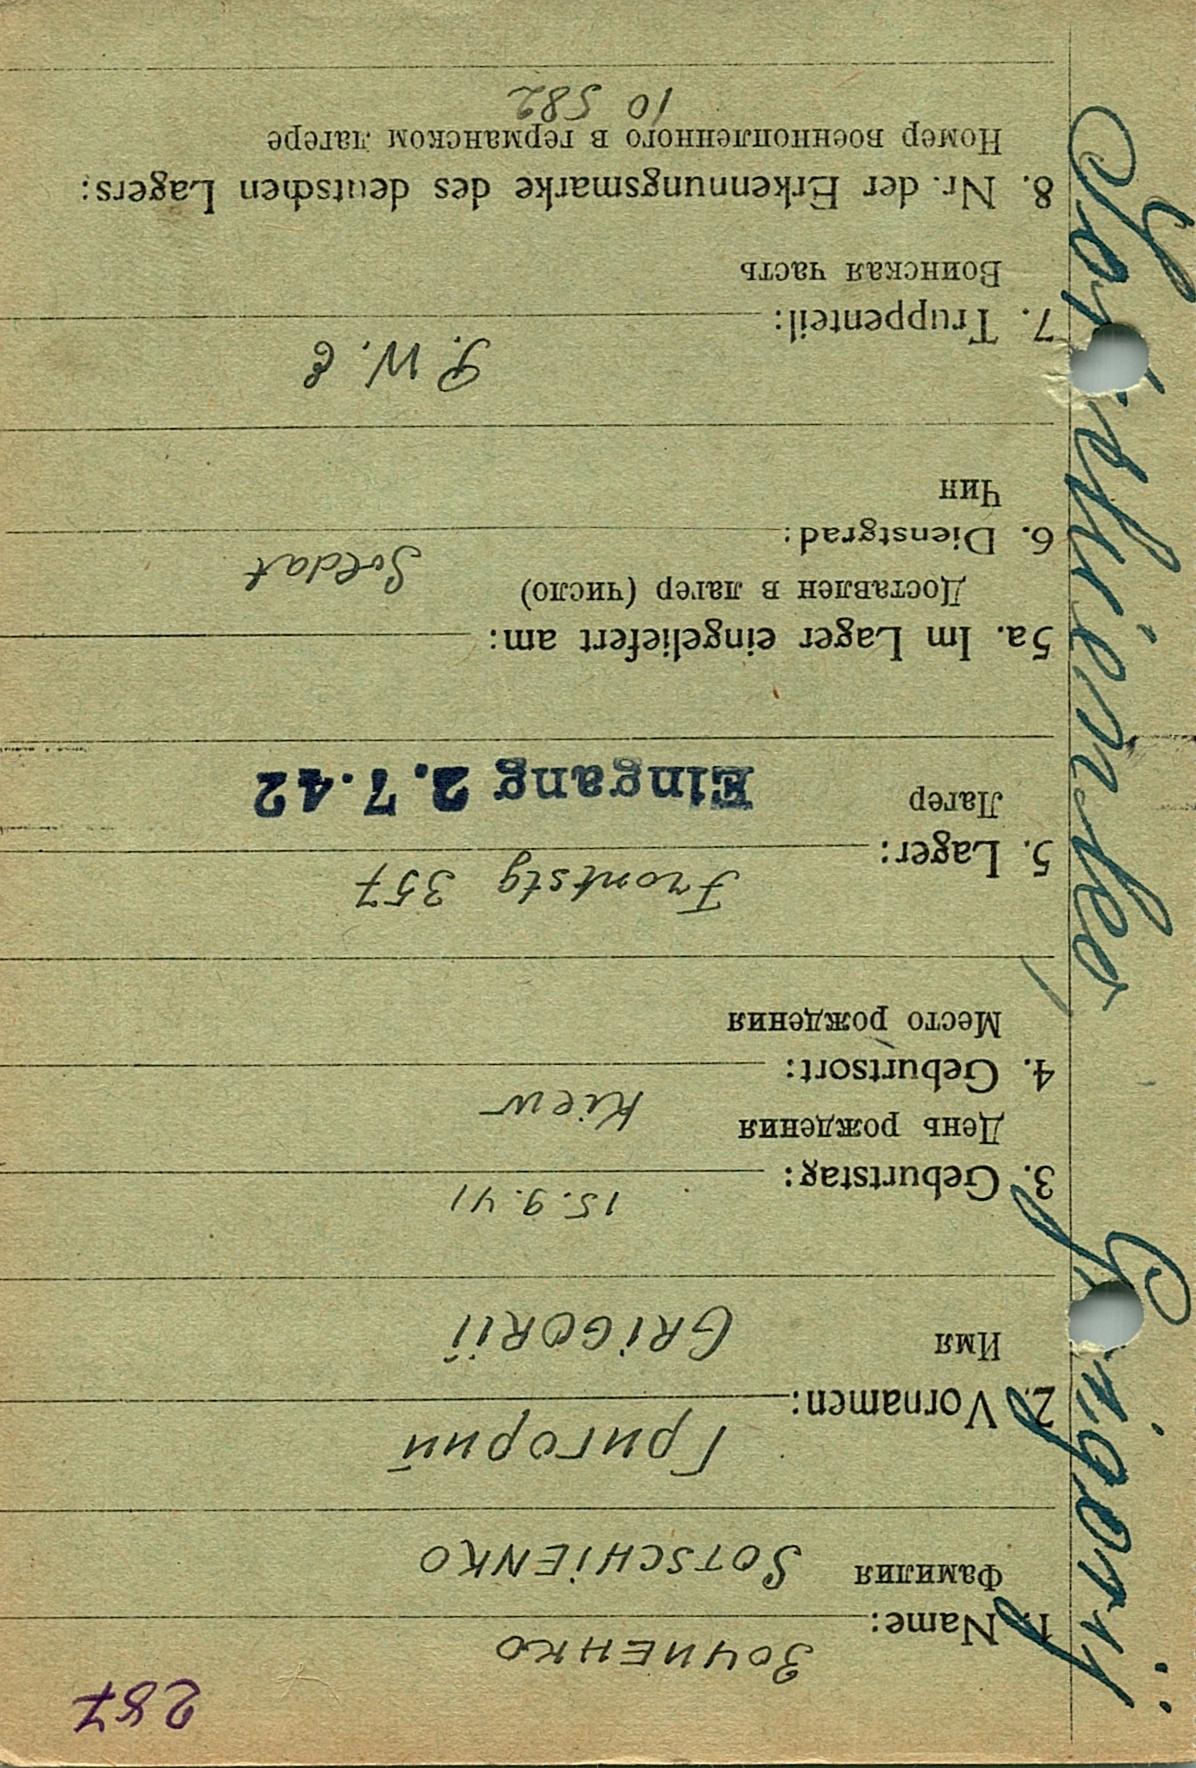 287
Зочиенко
1. Name:
Фамилия SOTSCHiENKO
Григорий
2. Vornamen:
Имя GRiGORiĬ
15.9.41
3. Geburtstag:
День рождения
Kiew
4. Geburtsort:
Место рождения
Frontstg 357
5. Lager:
Лагер Eingang 2.7.42
5a. Im Lager eingeliefert am:
Доставлен в лагер (число)
Soldat
6. Dienstgrad:
Чин
7. Truppenteil:
Воинская часть
8. Nr. der Erkennungsmarke des deutschen Lagers:
Номер военнопленного в германском лагере
10 582
Grigorij